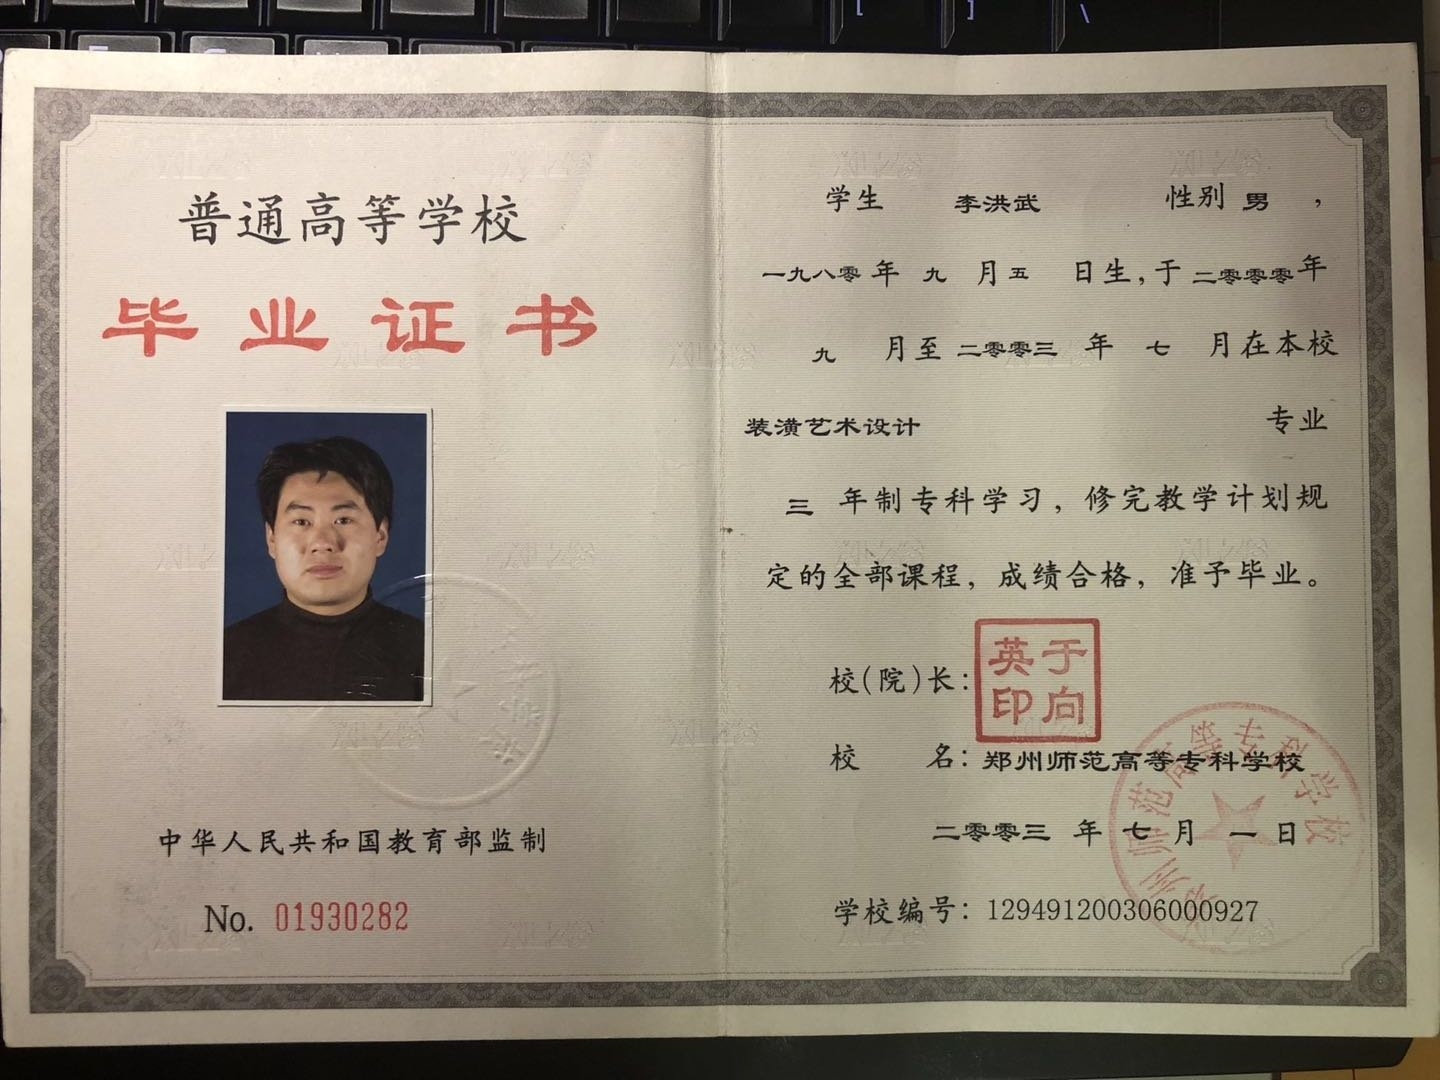 普通高等学校
毕业证书
中华人民共和国教育部监制
No. 01930282
学生 李洪武 性别 男 ，
一九八零 年 九 月 五 日生，于 二零零零 年
九 月至 二零零三 年 七 月在本校
装潢艺术设计 专业
三 年制专科学习，修完教学计划规
定的全部课程，成绩合格，准予毕业。
校（院）长：
于向英印
校 名：郑州师范高等专科学校
二零零三 年 七 月 一 日
学校编号：129491200306000927
郑州师范高等专科学校